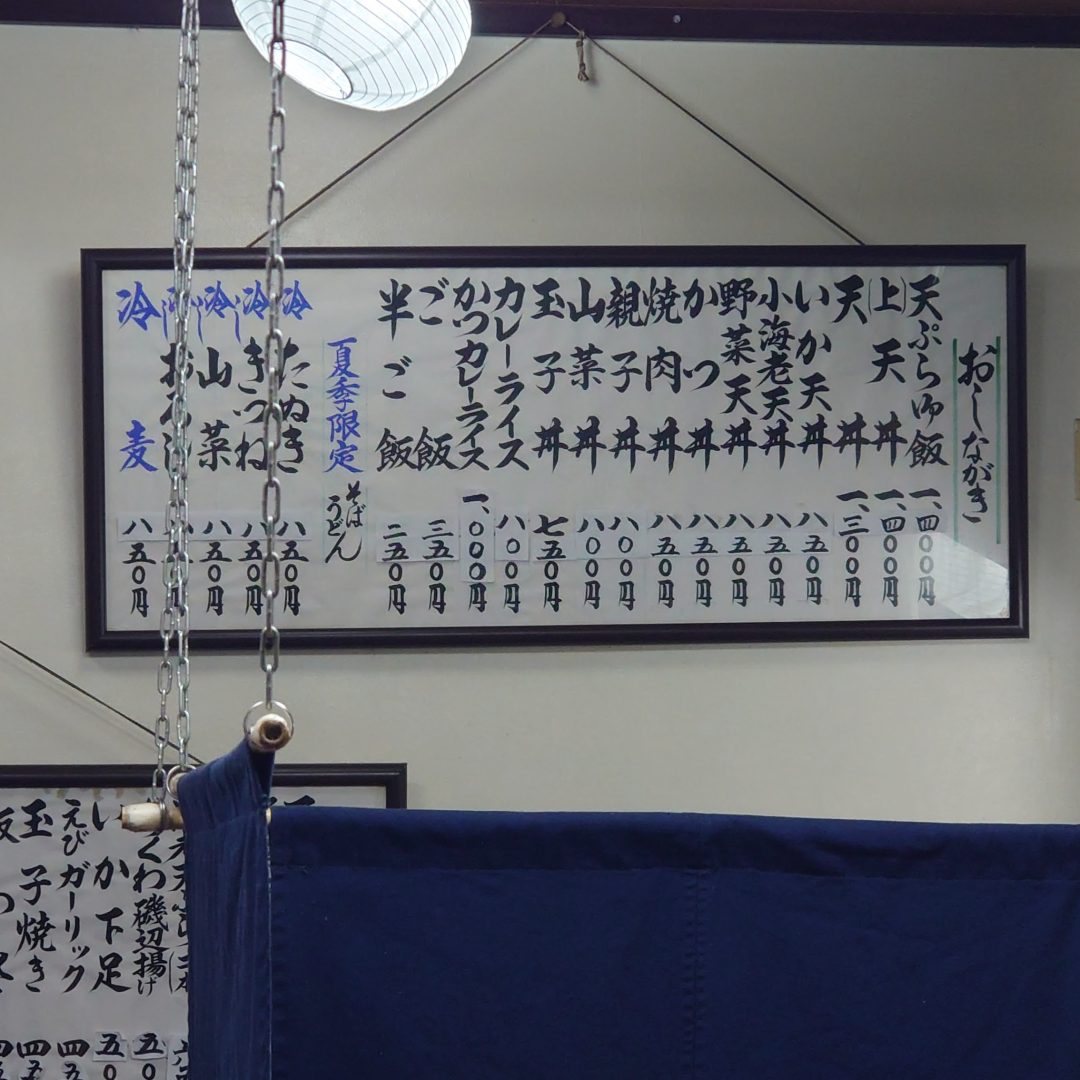 おしながき
天ぷら御飯 一、四〇〇円
上天丼 一、四〇〇円
天丼 一、三〇〇円
いか天丼 八五〇円
小海老天丼 八五〇円
野菜天丼 八五〇円
かつ丼 八五〇円
焼肉丼 八五〇円
親子丼 八〇〇円
山菜丼 八〇〇円
玉子丼 七五〇円
カレーライス 八〇〇円
かつカレーライス 一、〇〇〇円
ご飯 三五〇円
半ご飯 二五〇円
夏季限定 そば うどん
冷したぬき 八五〇円
冷しきつね 八五〇円
冷し山菜 八五〇円
冷麦 八五〇円
くわ磯辺揚げ 五〇
いか下足 五〇
えびガーリック 四五
玉子焼き 四五